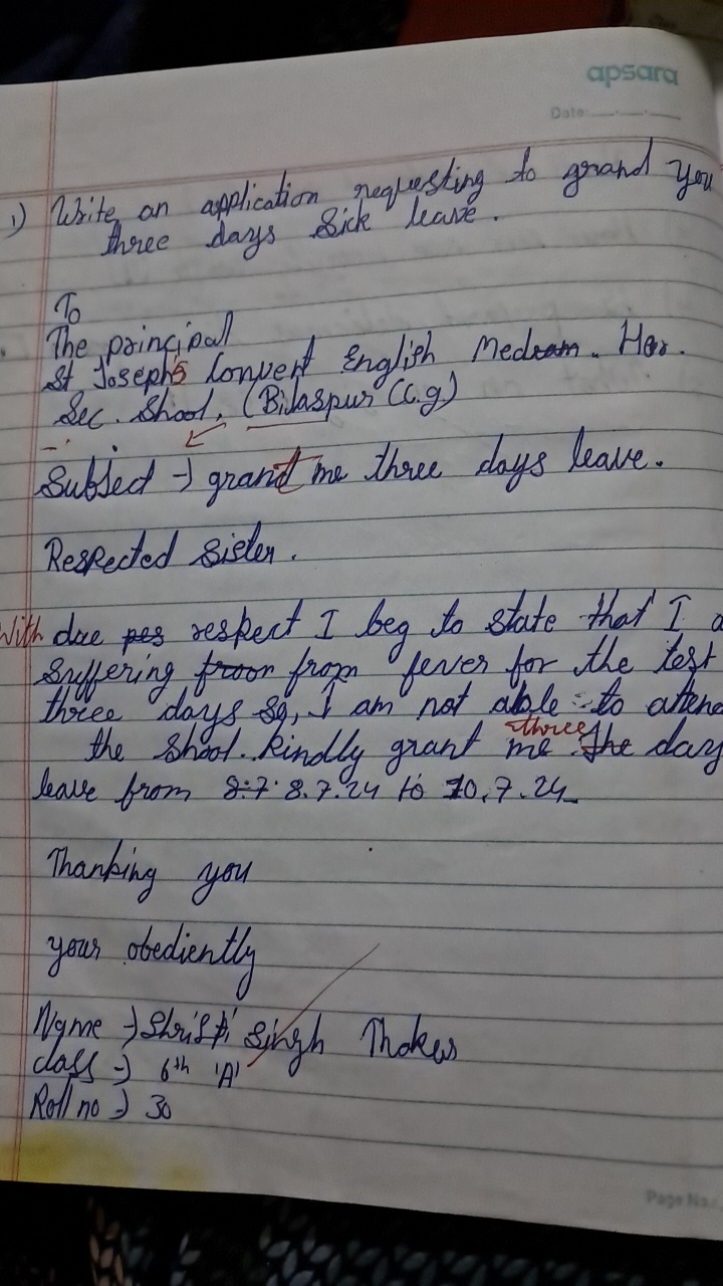 apsara
Date:
1) Write an application requesting to grand you
three days Sick leave.
To
The principal
St Joseph's Convert English Medram. Har.
Sec. Shool, (Bilaspur (C.g)
Subject → grant me three days leave.
Respected Sister.
With due pes respect I beg to state that I a
suffering froon from fever for the test
three days so, I am not able to attend
the Shool. kindly grant me three the days
leave from 8.7. 8.7.24 to 10.7.24
Thanking you
your obediently
Name → Shristi Singh Thakur
class → 6th 'A'
Roll no → 30
Page No.